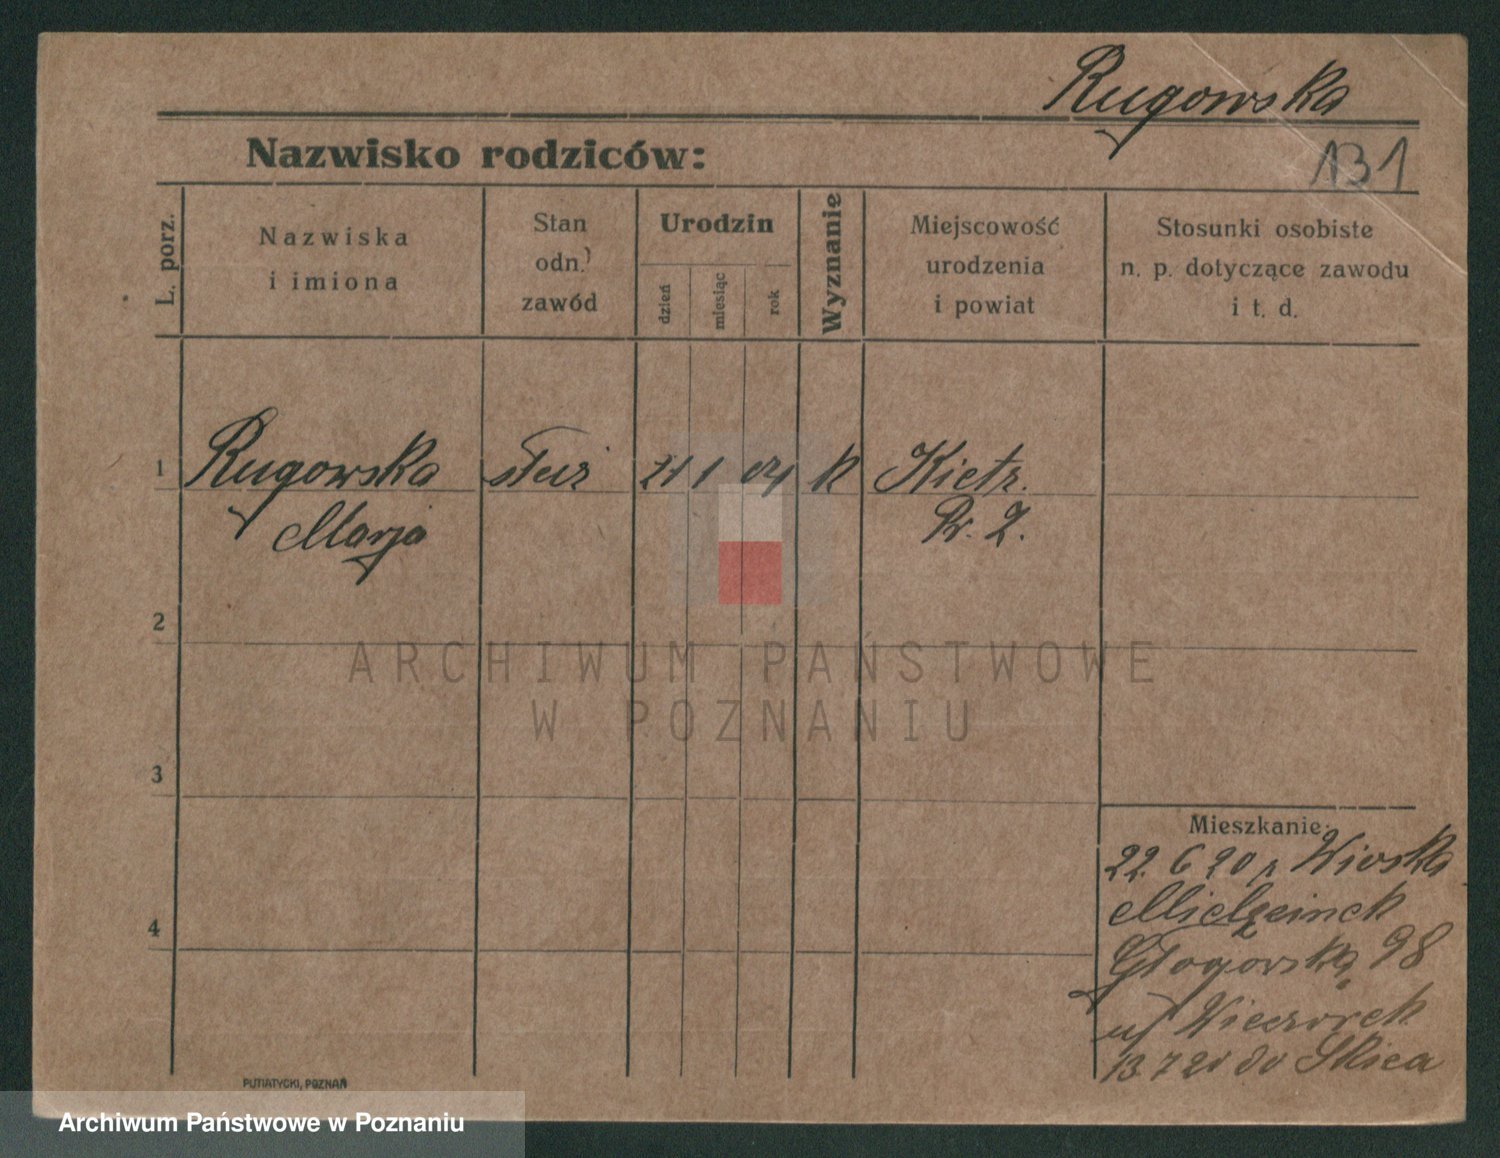 Rugowska
Nazwisko rodziców:
131
L. porz.
Nazwiska
i imiona
Stan
odn.
zawód
Urodzin
dzień
miesiąc
rok
Wyznanie
Miejscowość
urodzenia
i powiat
Stosunki osobiste
n. p. dotyczące zawodu
i t. d.
1
Rugowska
Marja
służ
21 1 04
k
Kietz.
2
3
4
ARCHIWUM PAŃSTWOWE
W POZNANIU
Mieszkanie:
22. 6 20 z Wioska
Głogowska 98
Wieczorek
13 7 20 do
PUTIATYCKI, POZNAŃ
Archiwum Państwowe w Poznaniu